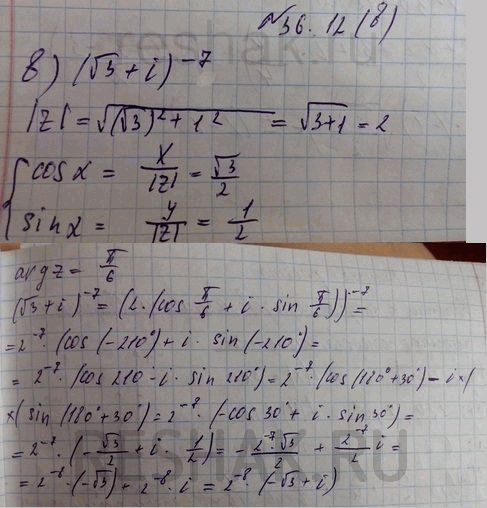 №36.12(в)
в) (√3 + i)⁻⁷
|z| = √((√3)² + 1²) = √3+1 = 2
{ cos x = x/|z| = √3/2
sin x = y/|z| = 1/2
arg z = π/6
(√3 + i)⁻⁷ = (2·(cos π/6 + i · sin π/6))⁻⁷ =
= 2⁻⁷ · (cos(-210°) + i · sin(-210°) =
= 2⁻⁷ · (cos 210 - i · sin 210°) = 2⁻⁷ · (cos(180°+30°) - i×(
×(sin(180°+30°) = 2⁻⁷ · (-cos 30° + i · sin 30°) =
= 2⁻⁷ · (-√3/2 + i · 1/2) = - 2⁻⁷·√3/2 + 2⁻⁷/2 i =
= 2⁻⁸ · (-√3) + 2⁻⁸ · i = 2⁻⁸ · (-√3 + i)
reshak.ru
RESHAK.RU